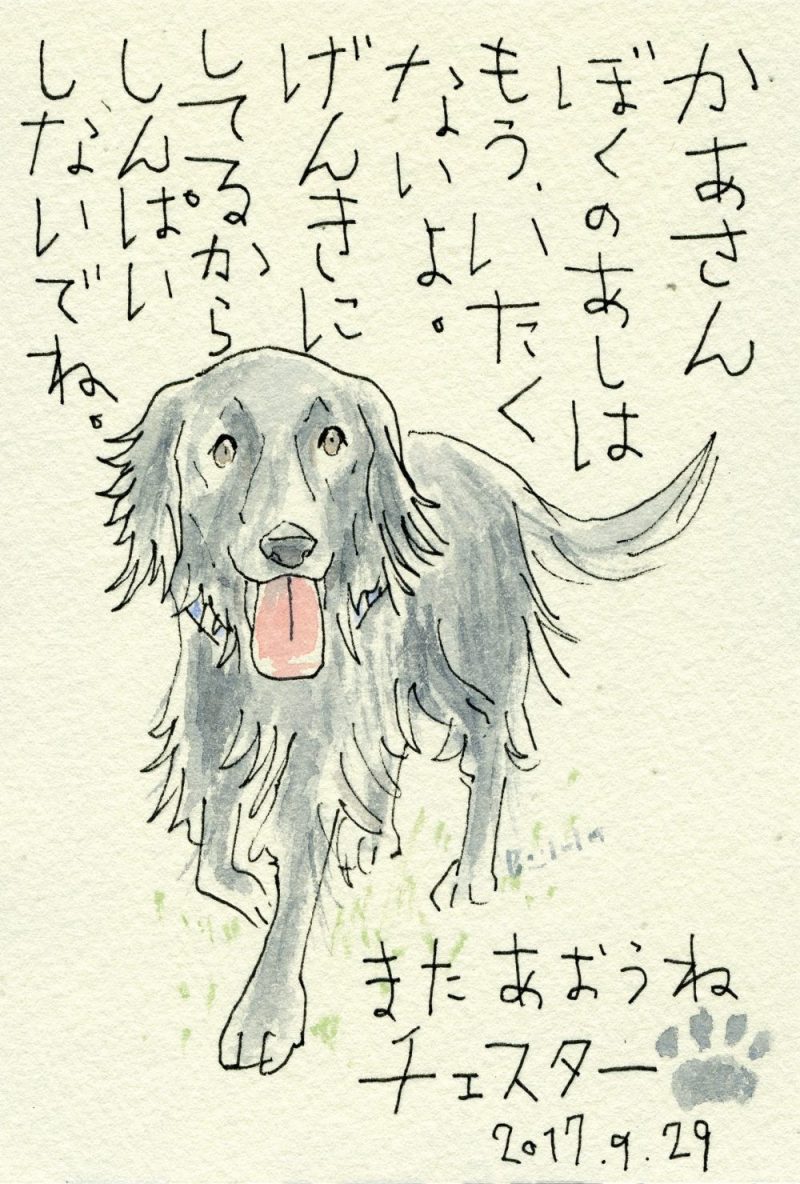 かあさん
ぼくのあしは
もう、いたく
ないよ。
げんきに
してるから。
しんぱい
しないでね。
またあおうね
チェスター
2017.9.29